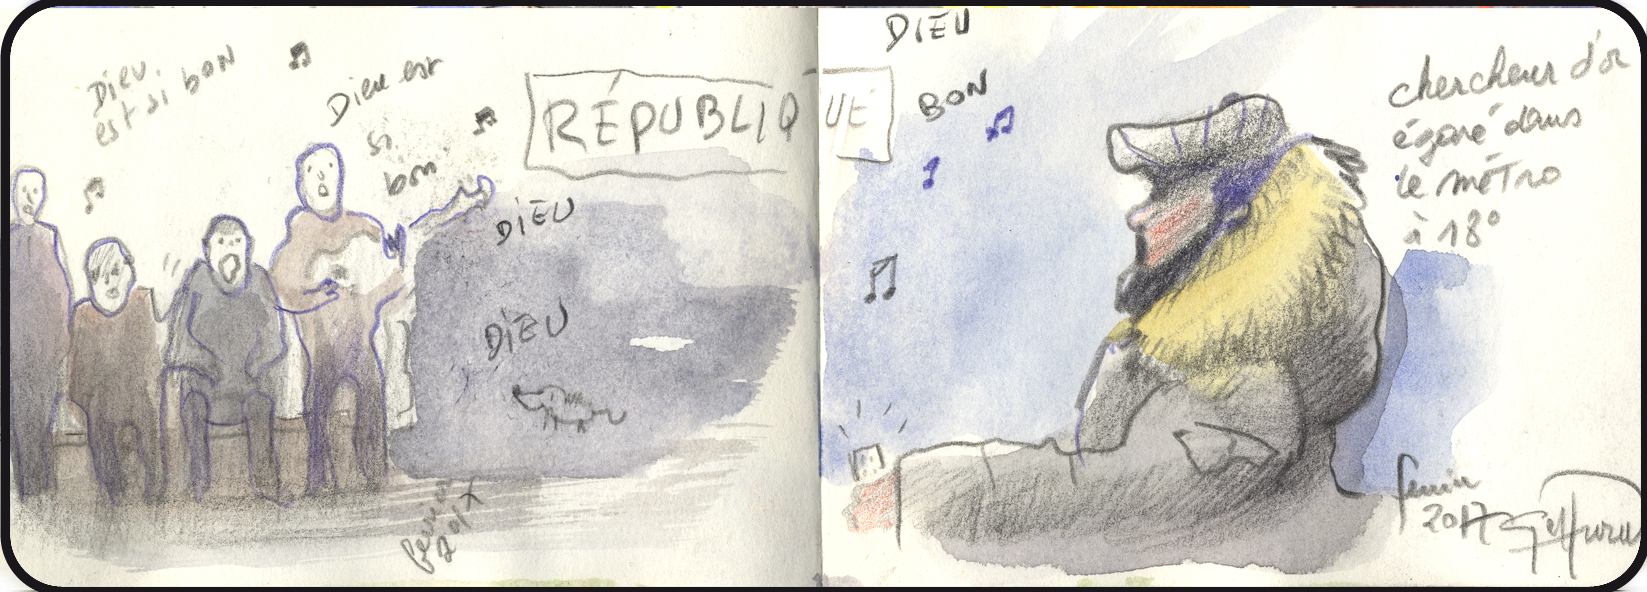 Dieu
est si bon
Dieu est
si
bon
RÉPUBLIQUE
DIEU
DIEU
DIEU
BON
chercheur d'or
égaré dans
le métro
à 18°
2017
2017